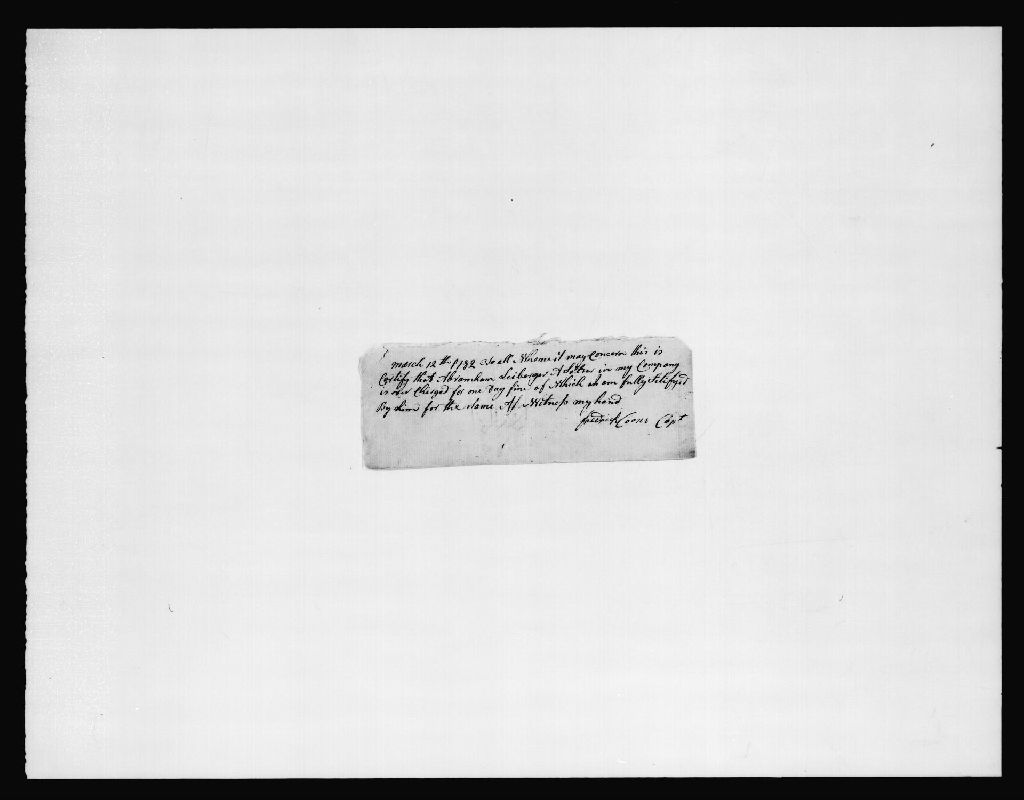 march 12th 1782 To all Whome it may Concern this is
Certify that Abramham in my Company
is over Charged for one Day fine of Which I am fully Satisfyed
By him for the Same As Witness my hand
Capt